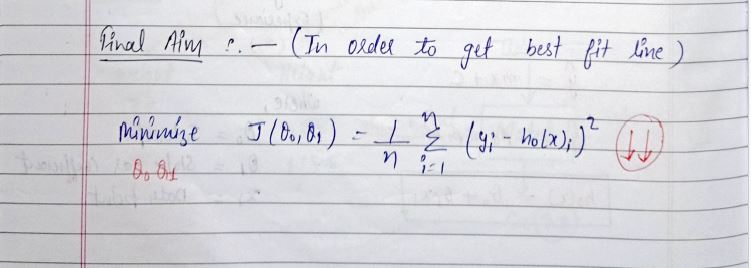 Final Aim :. — (In order to get best fit line)
Minimize J(θ₀, θ₁) = 1/n Σ i=1 n (yi - hθ(x)i)² ↓↓
θ₀ θ₁